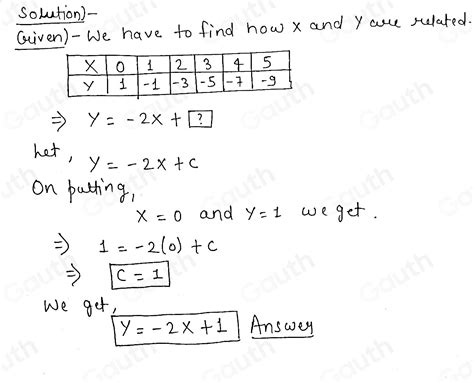 Solution)-
Given)- We have to find how x and y are related.
X 0 1 2 3 4 5
Y 1 -1 -3 -5 -7 -9
⇒ Y = -2x + ?
Let, y = -2x + c
On putting,
x = 0 and y = 1 we get.
⇒ 1 = -2(0) + c
⇒ C = 1
We get,
Y = -2x + 1 Answer
Gauth